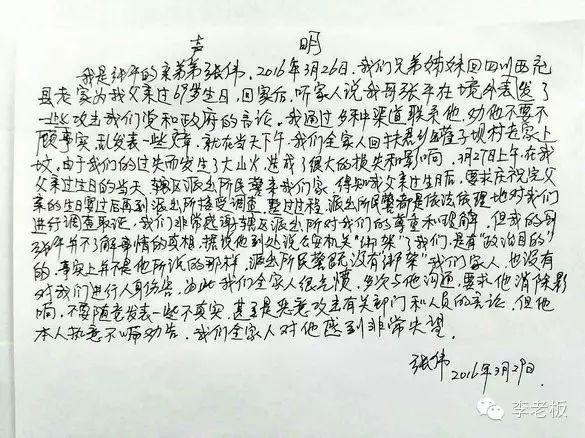 声明
我是张平的亲弟弟张伟。2016年3月26日，我们兄弟姊妹回四川西充
县老家为我父亲过69岁生日，回家后，听家人说我哥张平在境外发表了
一些攻击我们党和政府的言论，我通过多种渠道联系他，劝他不要不
顾事实，乱发表一些文章，就在当天下午，我们全家人回扶君乡 坝村老家上
坟，由于我们的过失而发生了大山火，造成了很大的损失和影响，3月27日上午，在我
父亲过生日的当天，辖区派出所民警来我们家，得知我父亲过生日后，要求庆祝完父
亲的生日宴过后再到派出所接受调查，整过过程，派出所民警都是依法依理地对我们
进行调查取证，我们非常感谢辖区派出所对我们的尊重和理解，但我的哥
张平并不了解事情的真相，据说他到处说公安机关“绑架”了我们，是有“政治目的”
的，事实上并不是他所说的那样，派出所民警既没有“绑架”我们家人，也没有
对我们进行人身伤害，为此我们全家人很气愤，多次与他沟通，要求他消除影
响，不要随意发表一些不真实，甚至是恶意攻击有关部门和人员的言论，但他
本人执意不听劝告，我们全家人对他感到非常失望。
张伟 2016年3月29日.
李老板